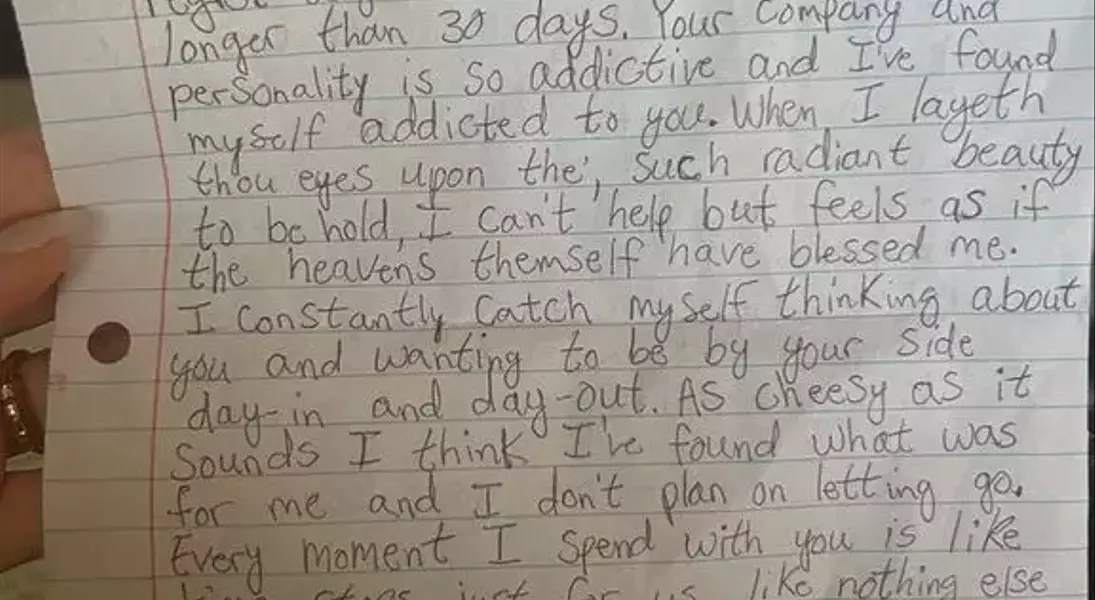 longer than 30 days. Your Company and
personality is so addictive and I've found
myself addicted to you. When I layeth
thou eyes upon the', such radiant beauty
to be hold, I can't help but feels as if
the heavens themself have blessed me.
I Constantly Catch myself thinking about
you and wanting to be by your side
day-in and day-out. As cheesy as it
Sounds I think I've found what was
for me and I don't plan on letting go.
Every moment I spend with you is like
just for us like nothing else